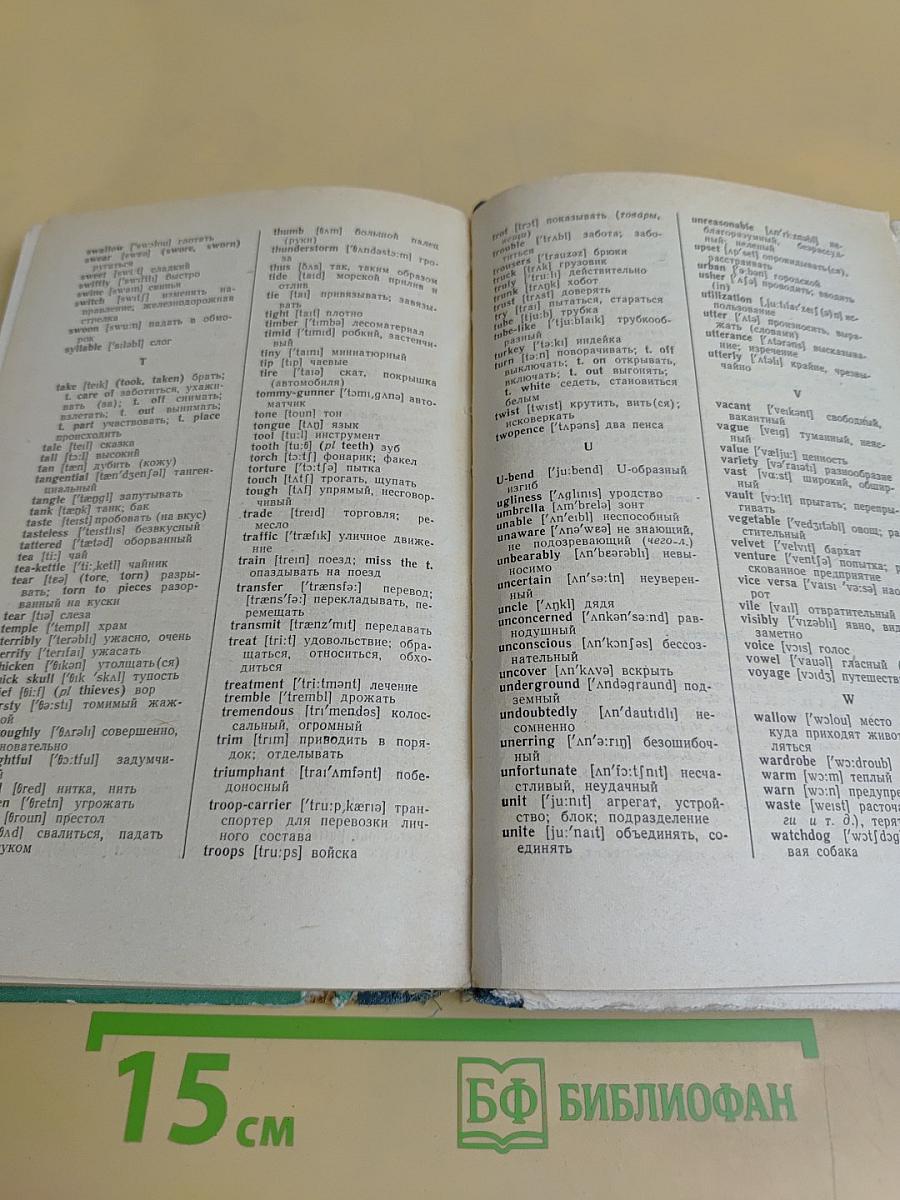 swallow ['swɔlou] глотать
swear [swɛə] (swore, sworn)
ругаться
sweet [swi:t] сладкий
swiftly ['swiftli] быстро
swine [swaɪn] свинья
switch [swɪtʃ] изменить на-
правление; железнодорожная
стрелка
swoon [swu:n] падать в обмо-
рок
syllable ['sɪləbl] слог
T
take [teɪk] (took, taken) брать;
t. care of заботиться, ухажи-
вать (за); t. off снимать;
взлетать; t. out вынимать;
t. part участвовать; t. place
происходить
tale [teɪl] сказка
tall [tɔ:l] высокий
tan [tæn] дубить (кожу)
tangential [tæn'dʒenʃəl] танген-
циальный
tangle ['tæŋgl] запутывать
tank [tæŋk] танк; бак
taste [teɪst] пробовать (на вкус)
tasteless ['teɪstlɪs] безвкусный
tattered ['tætəd] оборванный
tea [ti:] чай
tea-kettle ['ti:,ketl] чайник
tear [tɛə] (tore, torn) разры-
вать; torn to pieces разор-
ванный на куски
tear [tɪə] слеза
temple ['templ] храм
terribly ['terəblɪ] ужасно, очень
terrify ['terɪfaɪ] ужасать
hicken ['θɪkən] утолщать(ся)
ick skull ['θɪk 'skʌl] тупость
ief [θi:f] (pl thieves) вор
rsty ['θə:stɪ] томимый жаж-
ой
roughly ['θʌrəlɪ] совершенно,
новательно
ghtful ['θɔ:tful] задумчи-
й
[θred] нитка, нить
en ['θretn] угрожать
[θroun] престол
θʌd] свалиться, падать
уком
thumb [θʌm] большой палец
(руки)
thunderstorm ['θʌndəstɔ:m] гро-
за
thus [ðʌs] так, таким образом
tide [taɪd] морской прилив и
отлив
tie [taɪ] привязывать; завязы-
вать
tight [taɪt] плотно
timber ['tɪmbə] лесоматериал
timid ['tɪmɪd] робкий, застенчи-
вый
tiny ['taɪnɪ] миниатюрный
tip [tɪp] чаевые
tire ['taɪə] скат, покрышка
(автомобиля)
tommy-gunner ['tɔmɪ,gʌnə] авто-
матчик
tone [toun] тон
tongue [tʌŋ] язык
tool [tu:l] инструмент
tooth [tu:θ] (pl teeth) зуб
torch [tɔ:tʃ] фонарик; факел
torture ['tɔ:tʃə] пытка
touch [tʌtʃ] трогать, щупать
tough [tʌf] упрямый, несговор-
чивый
trade [treɪd] торговля; ре-
месло
traffic ['træfɪk] уличное движе-
ние
train [treɪn] поезд; miss the t.
опаздывать на поезд
transfer ['trænsfə:] перевод;
[træns'fə:] перекладывать, пе-
ремещать
transmit [trænz'mɪt] передавать
treat [tri:t] удовольствие; обра-
щаться, относиться, обхо-
диться
treatment ['tri:tmənt] лечение
tremble ['trembl] дрожать
tremendous [trɪ'mendəs] колос-
сальный, огромный
trim [trɪm] приводить в поря-
док; отделывать
triumphant [traɪ'ʌmfənt] побе-
доносный
troop-carrier ['tru:p,kærɪə] тран-
спортер для перевозки лич-
ного состава
troops [tru:ps] войска
trot [trɔt] показывать (товары,
вещи)
trouble ['trʌbl] забота; забо-
титься
trousers ['trauzəz] брюки
truck [trʌk] грузовик
truly ['tru:lɪ] действительно
trunk [trʌŋk] хобот
trust [trʌst] доверять
try [traɪ] пытаться, стараться
tube [tju:b] трубка
tube-like ['tju:blaɪk] трубкооб-
разный
turkey ['tə:kɪ] индейка
turn [tə:n] поворачивать; t. off
выключать; t. on открывать,
включать; t. out выгонять;
t. white седеть, становиться
белым
twist [twɪst] крутить, вить(ся);
исковеркать
twopence ['tʌpəns] два пенса
U
U-bend ['ju:bend] U-образный
изгиб
ugliness ['ʌglɪnɪs] уродство
umbrella [ʌm'brelə] зонт
unable ['ʌn'eɪbl] неспособный
unaware ['ʌnə'wɛə] не знающий,
не подозревающий (чего-л.)
unbearably [ʌn'bɛərəblɪ] невы-
носимо
uncertain [ʌn'sə:tn] неуверен-
ный
uncle ['ʌŋkl] дядя
unconcerned ['ʌnkən'sə:nd] рав-
нодушный
unconscious [ʌn'kɔnʃəs] бессоз-
нательный
uncover [ʌn'kʌvə] вскрыть
underground ['ʌndəgraund] под-
земный
undoubtedly [ʌn'dautɪdlɪ] не-
сомненно
unerring ['ʌn'ə:rɪŋ] безошибоч-
ный
unfortunate [ʌn'fɔ:tʃnɪt] несча-
стливый, неудачный
unit ['ju:nɪt] агрегат, устрой-
ство; блок; подразделение
unite [ju:'naɪt] объединять, со-
единять
unreasonable [ʌn'ri:znəbl] не-
благоразумный, безрассуд-
ный; нелепый
upset [ʌp'set] опрокидывать(ся),
расстраивать
urban ['ə:bən] городской
usher ['ʌʃə] проводить; вводить
(in)
utilization [,ju:tɪlaɪ'zeɪʃ(ə)n] ис-
пользование
utter ['ʌtə] произносить, выра-
жать (словами)
utterance ['ʌtərəns] высказыва-
ние; изречение
utterly ['ʌtəlɪ] крайне, чрезвы-
чайно
V
vacant ['veɪkənt] свободный,
вакантный
vague [veɪg] туманный, неяс-
ный
value ['vælju:] ценность
variety [və'raɪətɪ] разнообразие
vast [vɑ:st] широкий, обшир-
ный
vault [vɔ:lt] прыгать; перепры-
гивать
vegetable ['vedʒɪtəbl] овощ; ра
стительный
velvet ['velvɪt] бархат
venture ['ventʃə] попытка; р
скованное предприятие
vice versa ['vaɪsɪ 'və:sə] нао
рот
vile [vaɪl] отвратительный
visibly ['vɪzəblɪ] явно, вид
заметно
voice [vɔɪs] голос
vowel ['vauəl] гласный (
voyage [vɔɪdʒ] путешеств
W
wallow ['wɔlou] место
куда приходят живот
ляться
wardrobe ['wɔ:droub]
warm [wɔ:m] теплый
warn [wɔ:n] предупре
waste [weɪst] расточа
ги и т. д.), терят
watchdog ['wɔtʃdɔg
вая собака
15 см
БФ БИБЛИОФАН